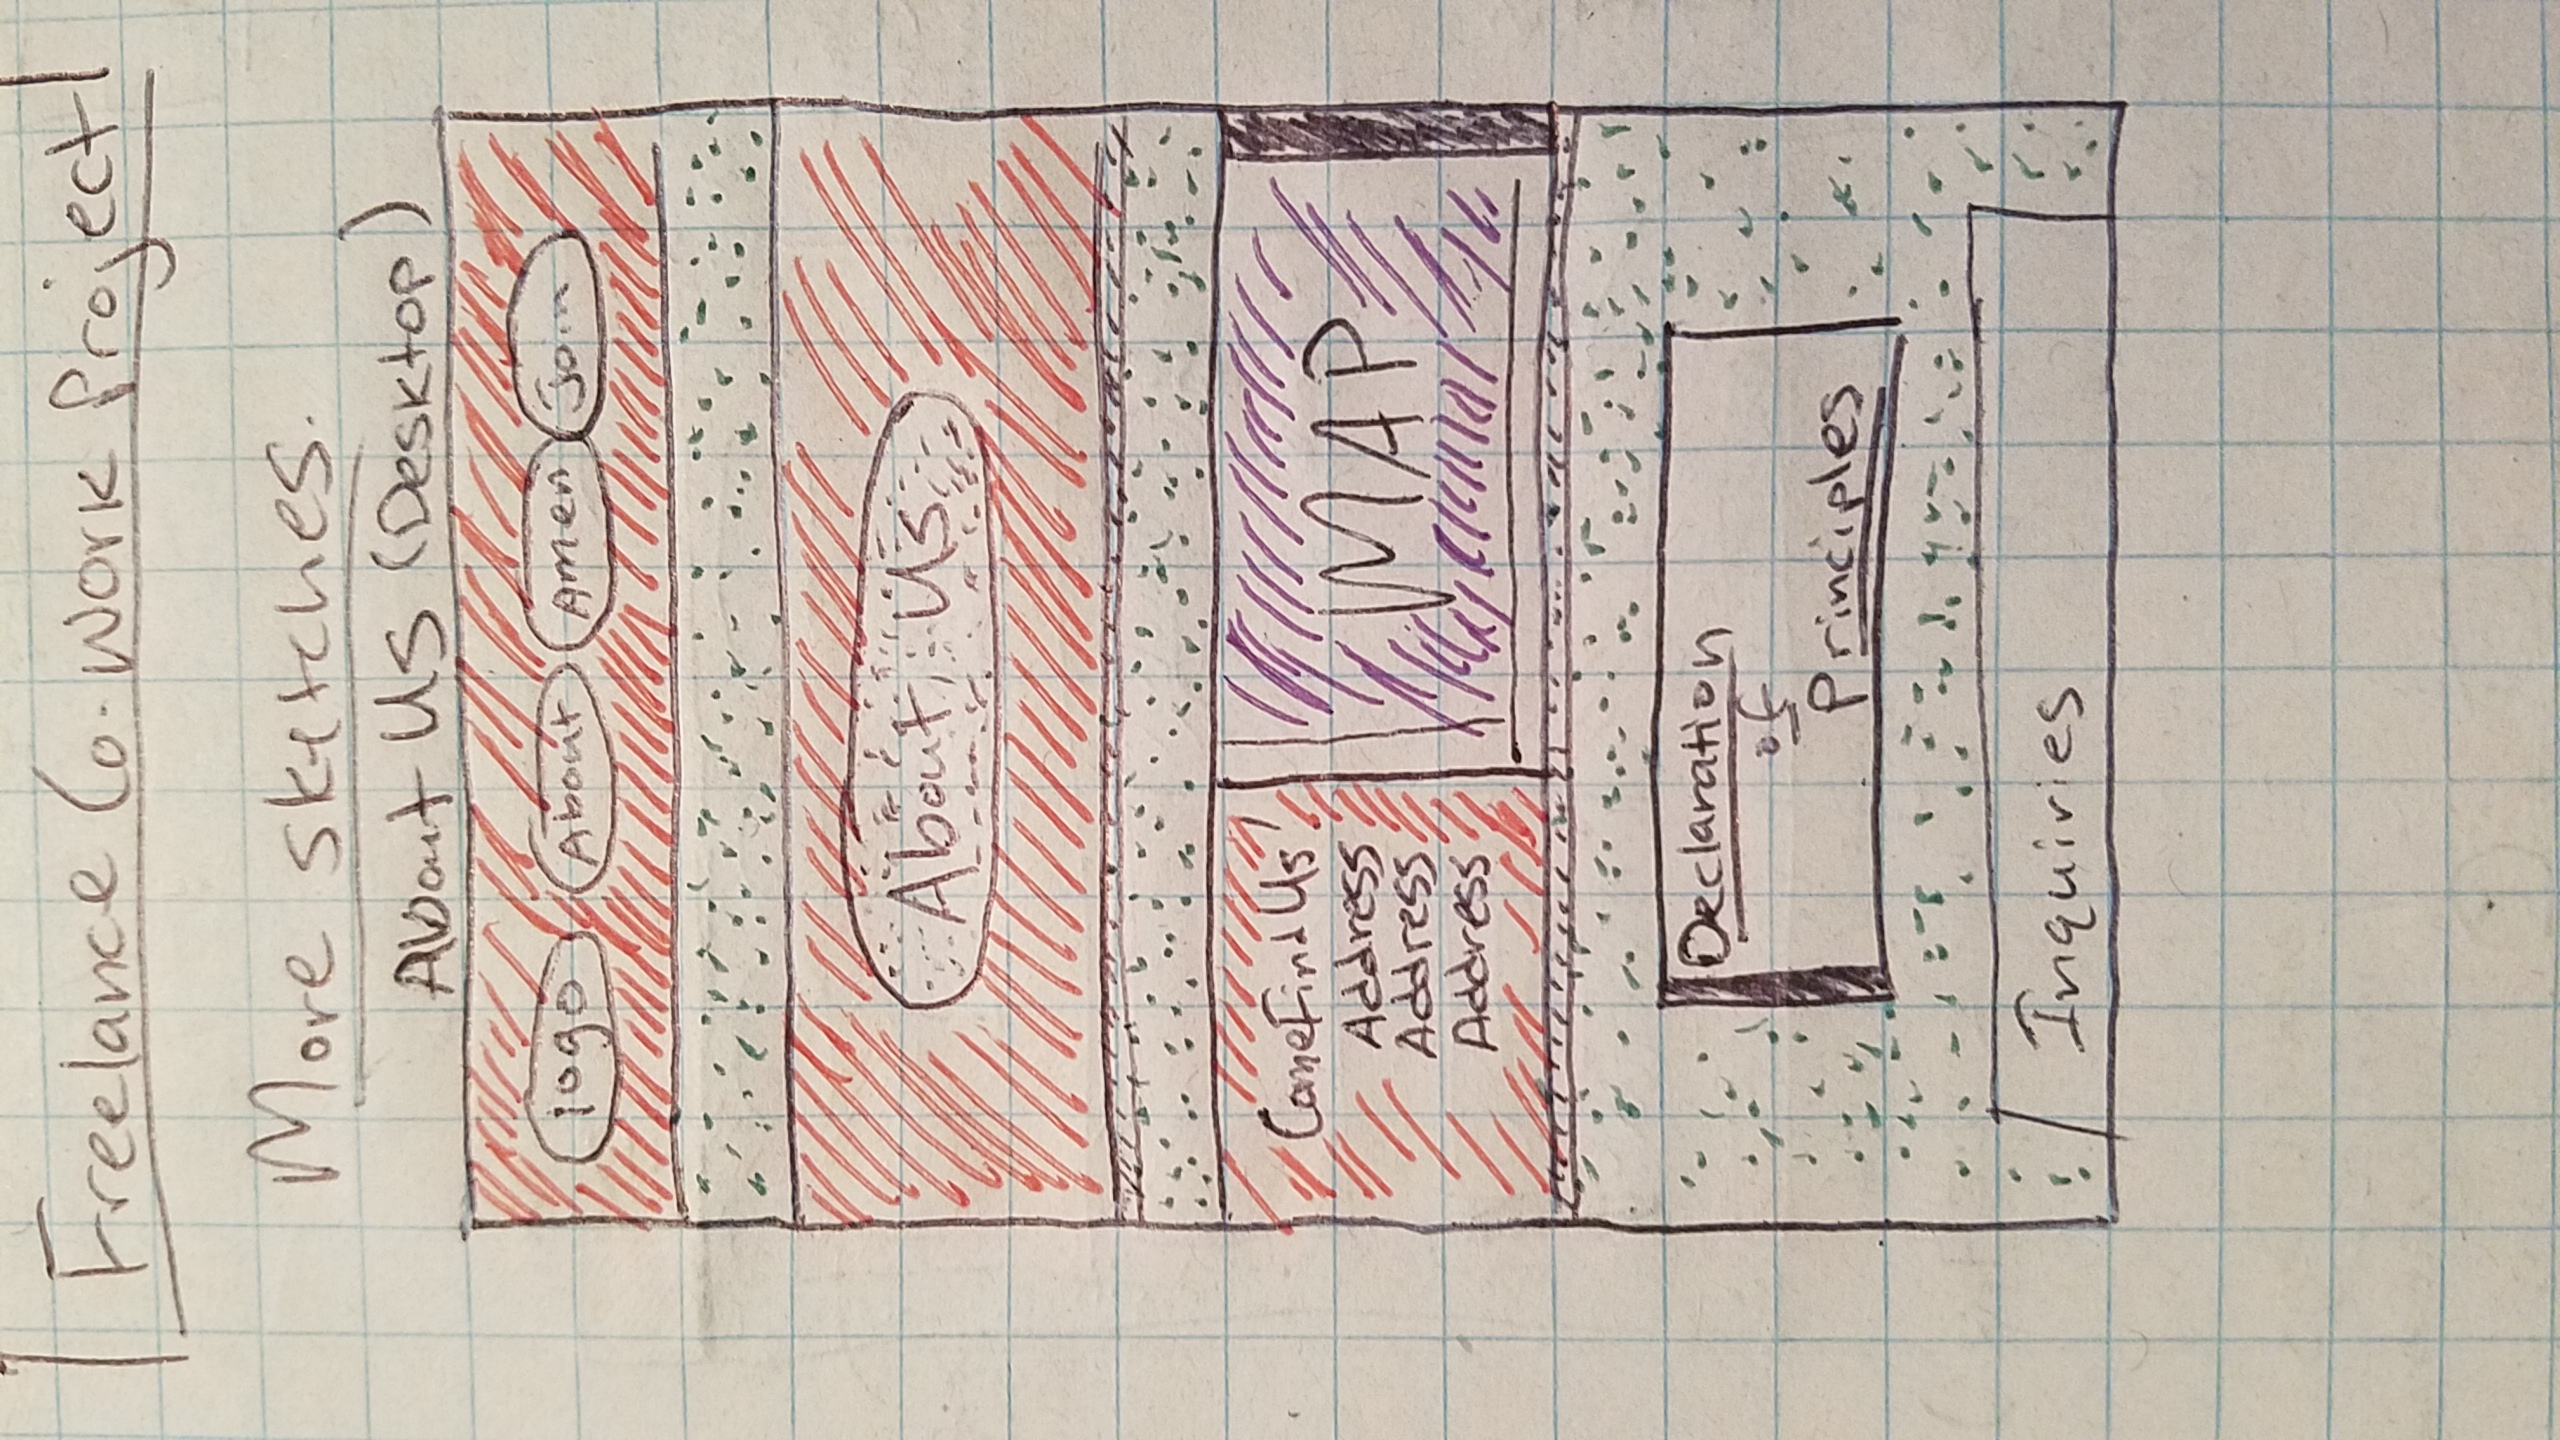 Freelance Co-Work Project
More sketches.
About Us (Desktop)
logo About Amen Join
About Us
Come Find Us
Address
Address
Address
MAP
Declaration
of
Principles
Inquiries